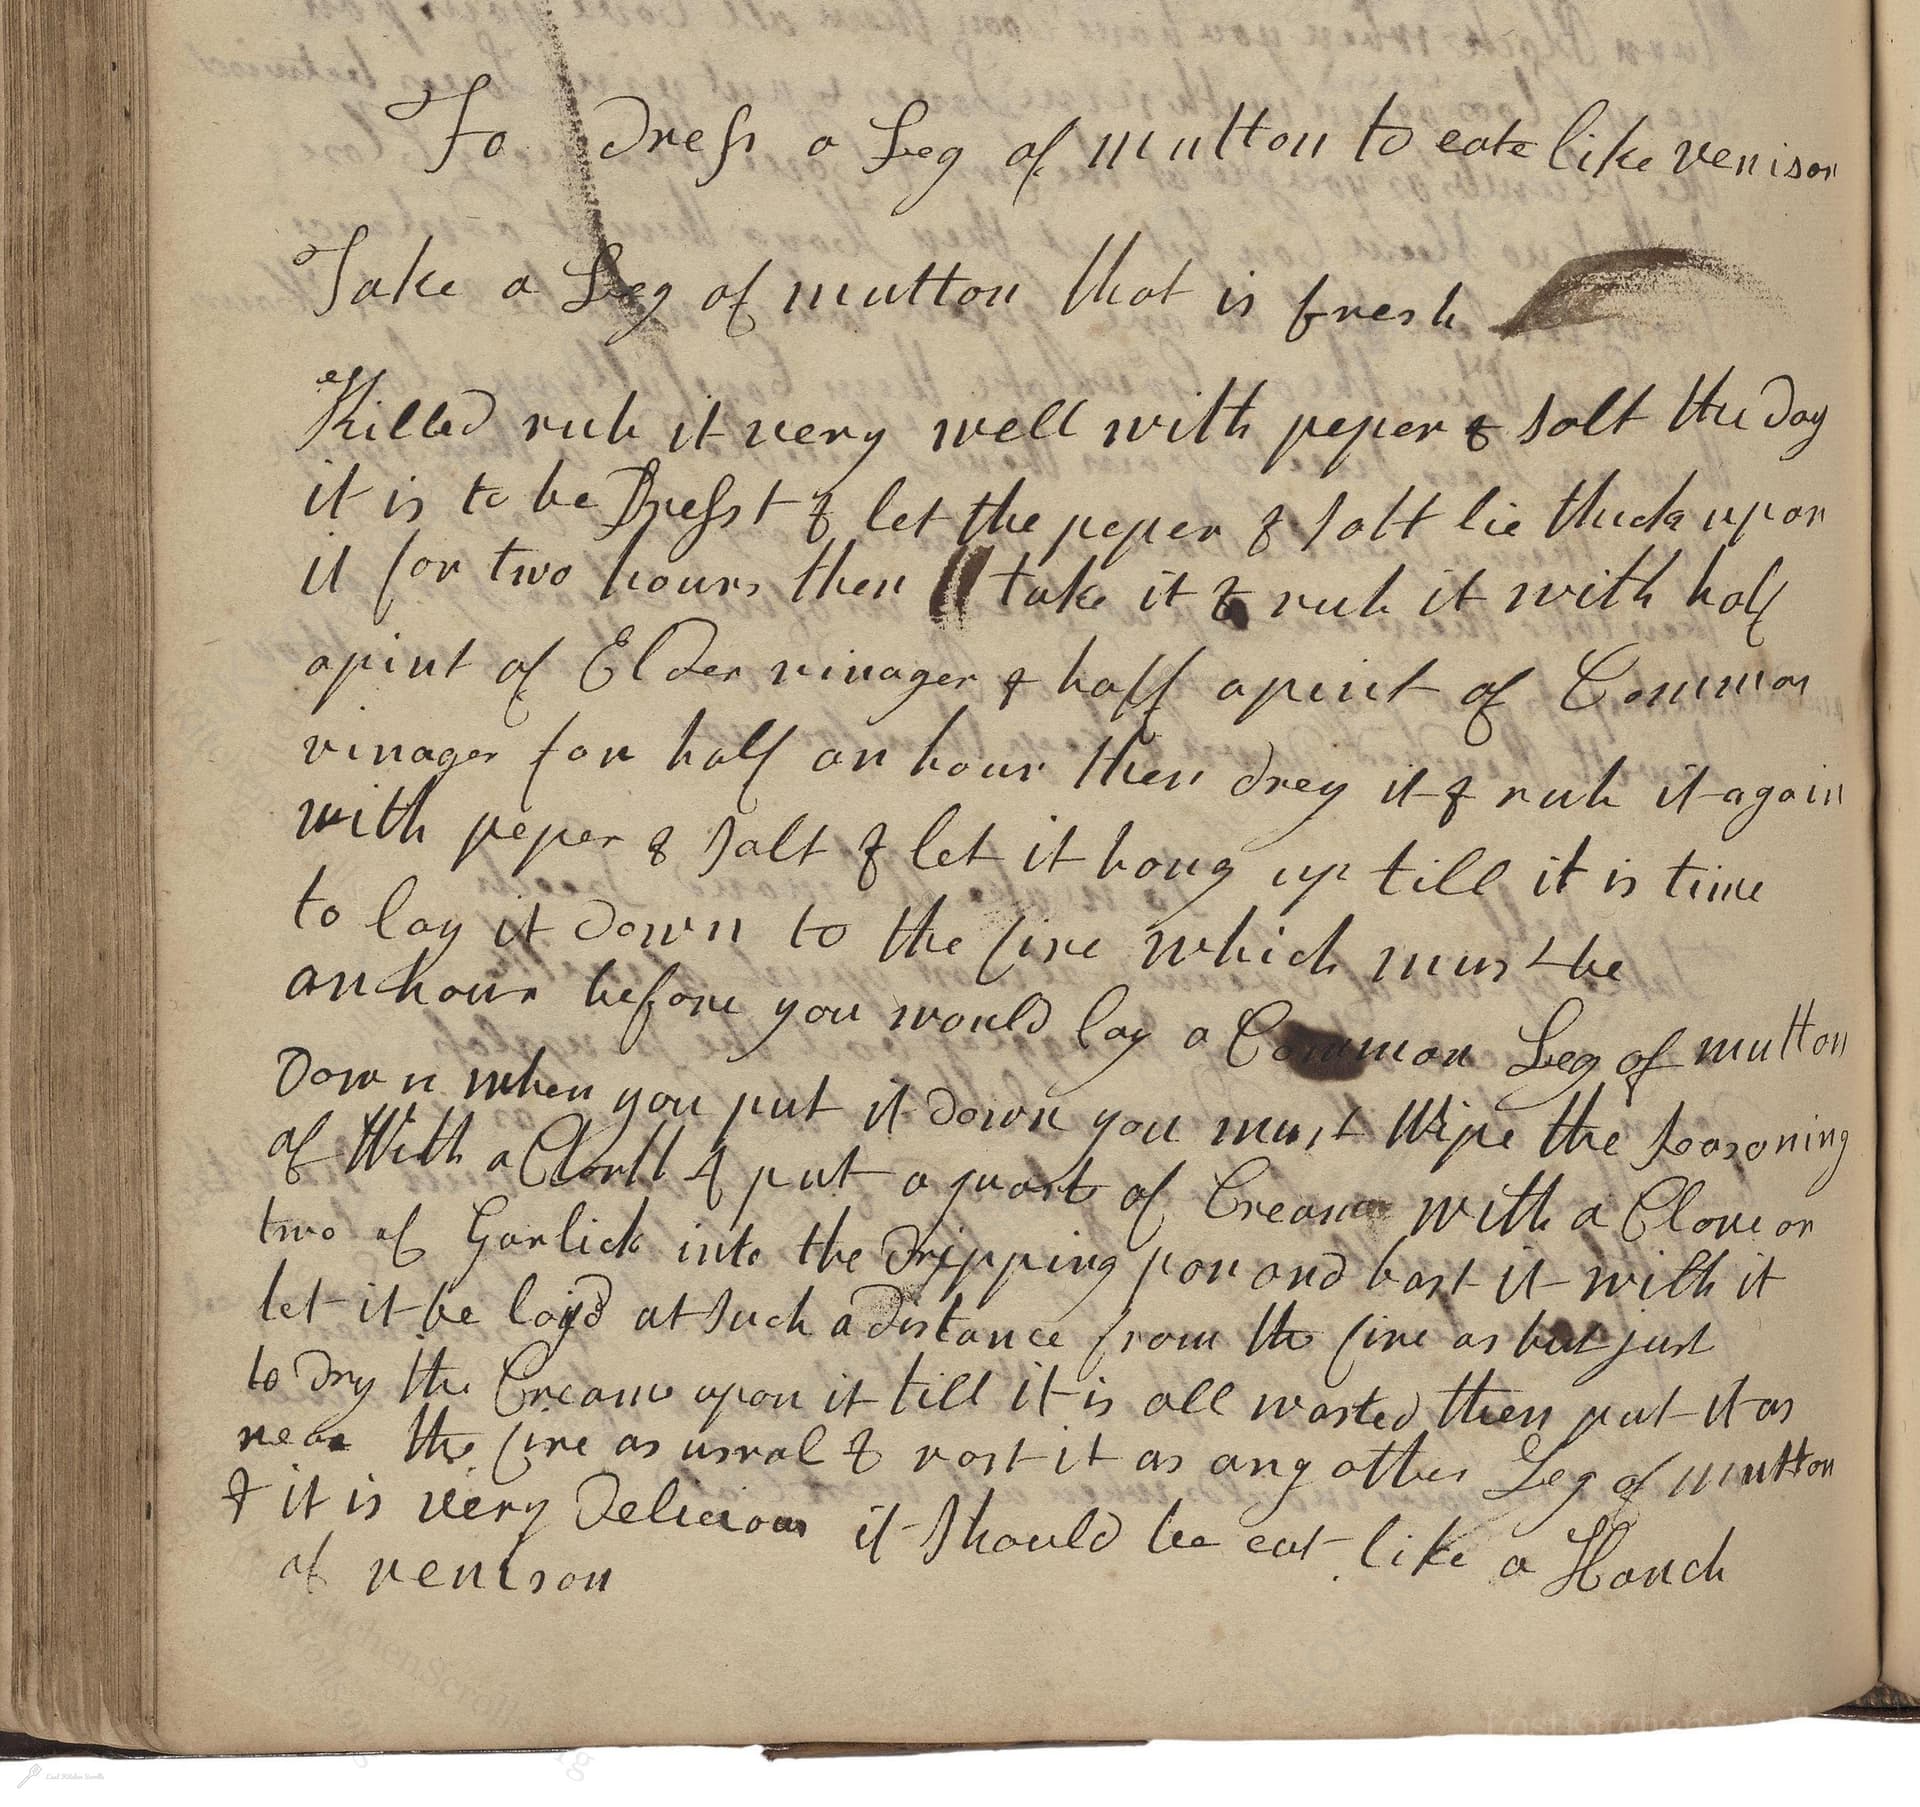 To Dress a Leg of mutton to eate like venison
Take a Leg of mutton that is fresh
Killed rub it very well with peper & salt the Day
it is to be Dresst & let the peper & salt lie thick upon
it for two hours then take it & rub it with half
a pint of Elder vinager & half a pint of Common
vinager for half an hour then drey it & rub it again
with peper & salt & let it hang up till it is time
to lay it down to the fire which must be
an hour before you would lay a Common Leg of mutton
Down when you put it down you must Wipe the seasoning
of With a Cloth & put a quart of Creame with a Clove or
two of Garlick into the Dripping pan and bast it with it
let it be layd at such a Distance from the fire as but just
to Dry the Creame upon it till it is all wasted then put it as
near the fire as usual & rost it as any other Leg of mutton
& it is very Delicious it should be eat like a Hanch
of venison
Lost Kitchen Scrolls